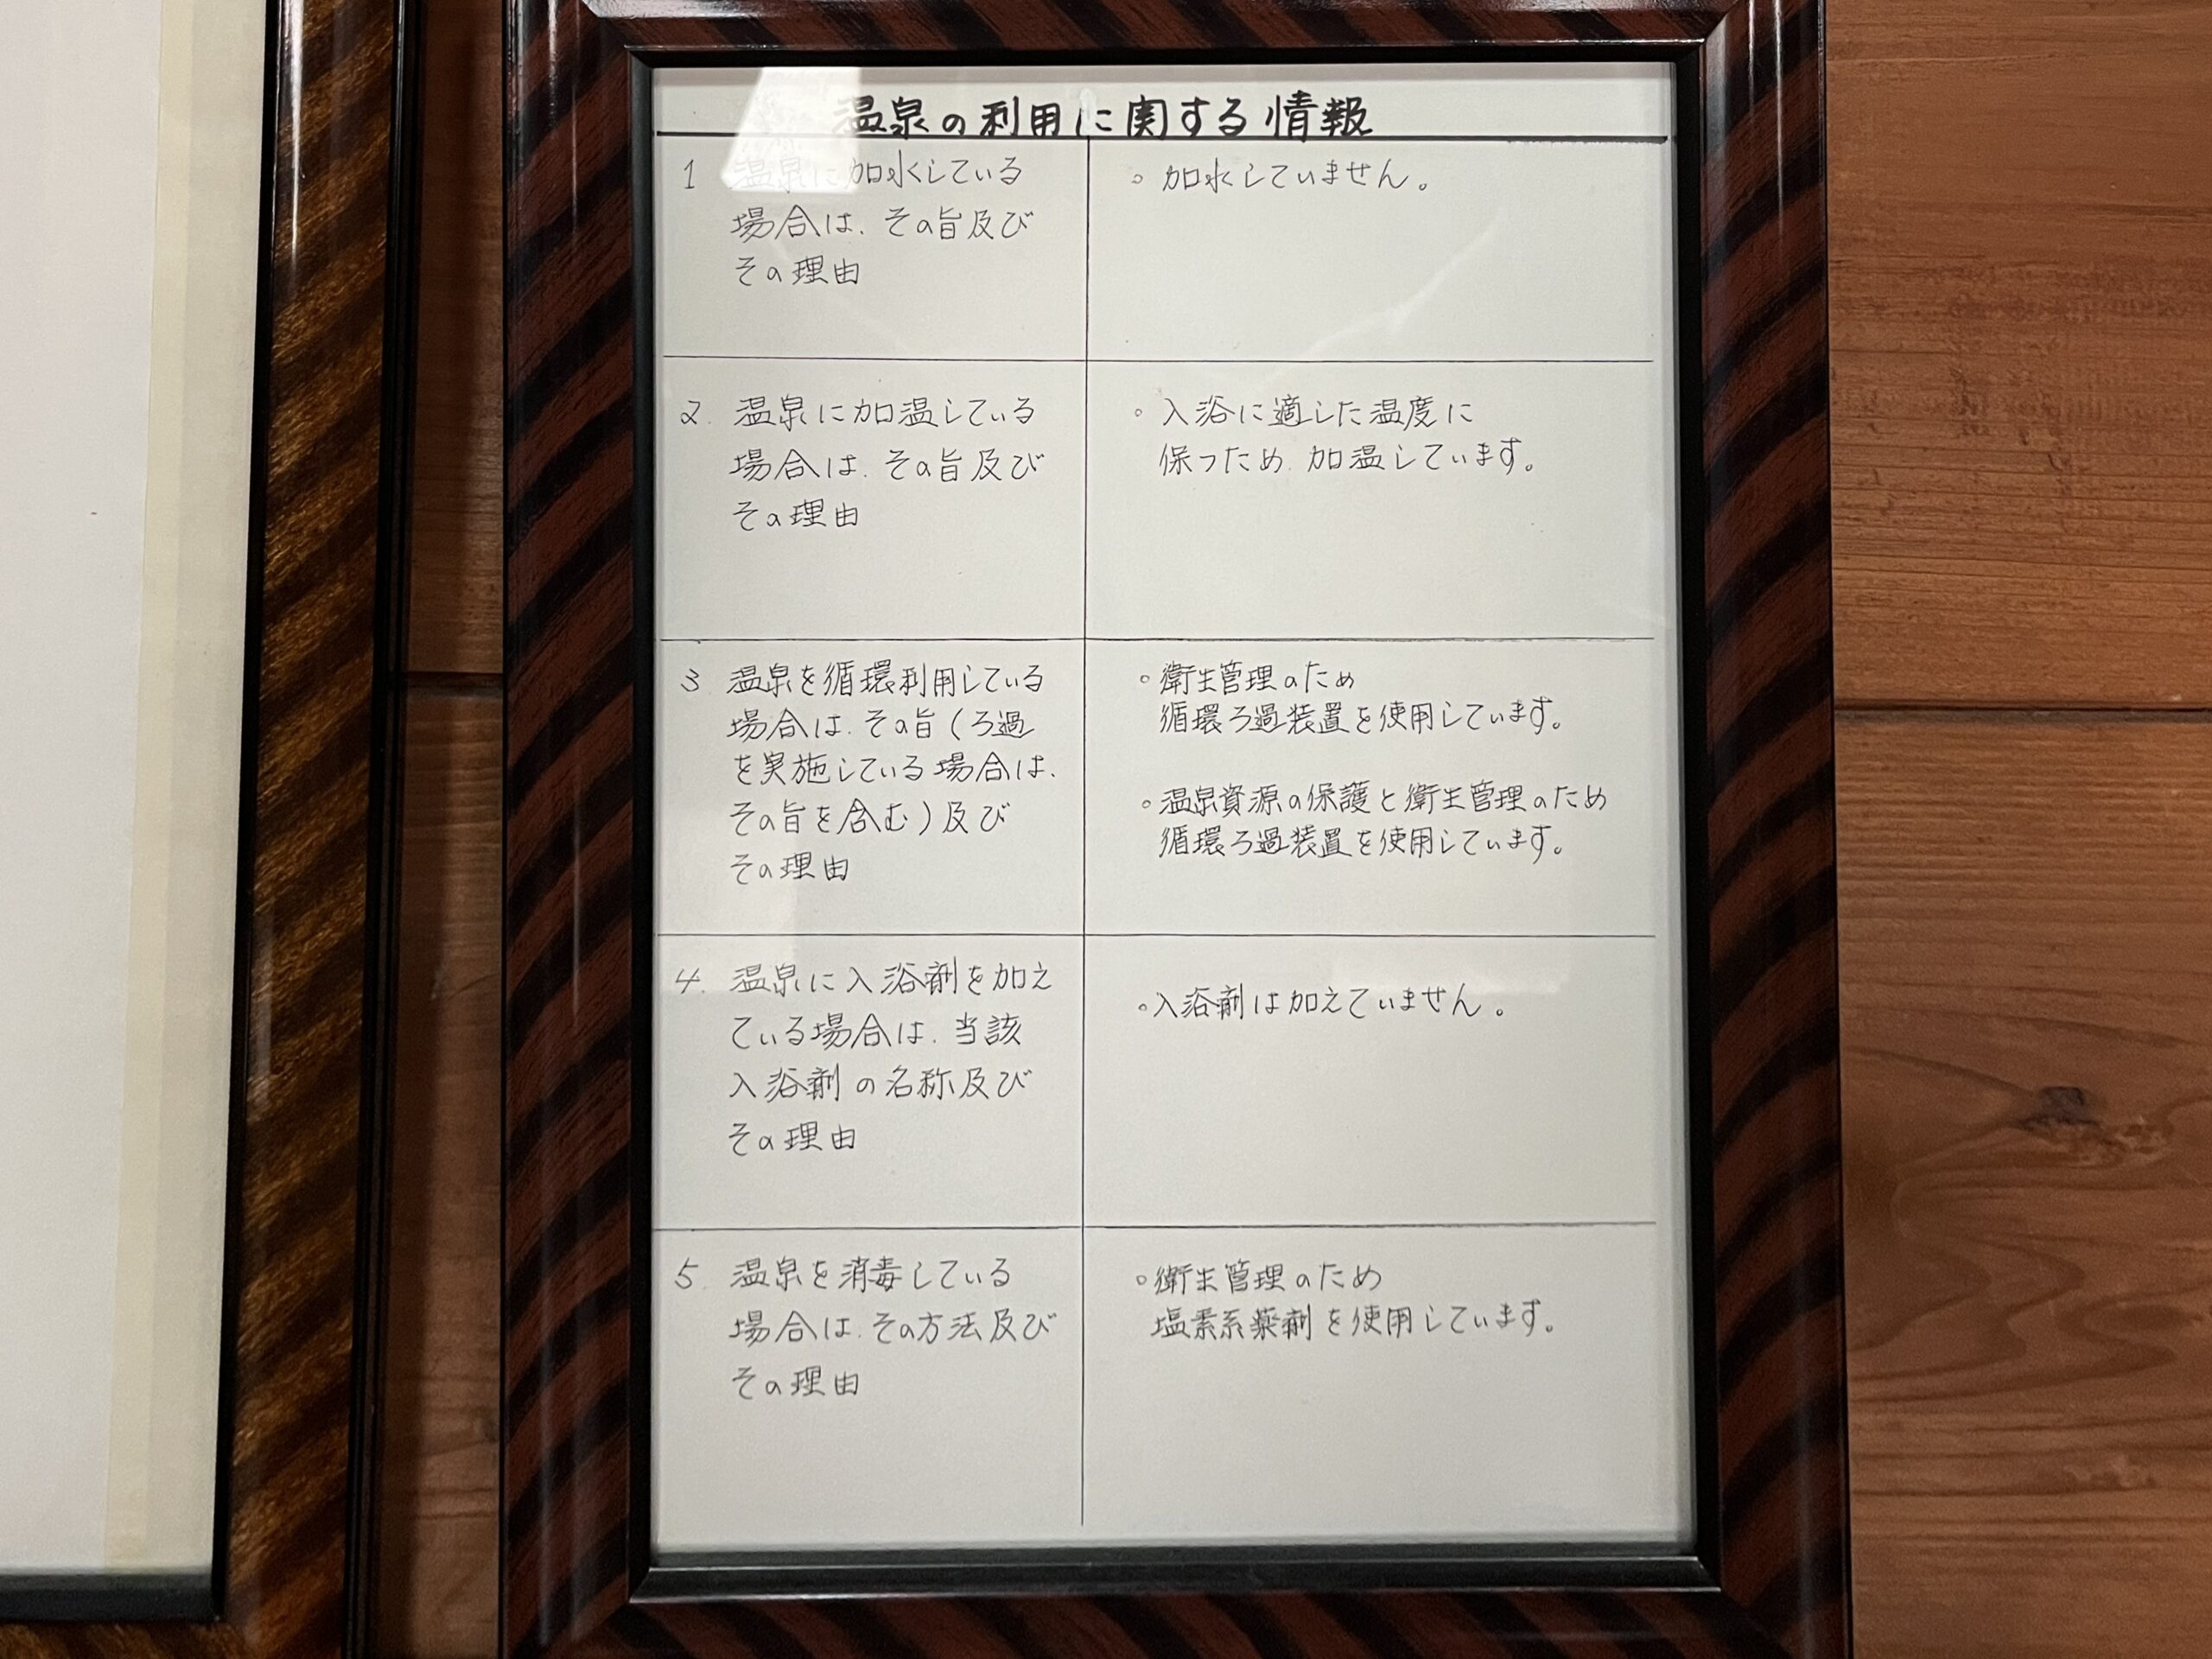 温泉の利用に関する情報
1 温泉に加水している
場合は、その旨及び
その理由
。加水していません。
2. 温泉に加温している
場合は、その旨及び
その理由
。入浴に適した温度に
保つため、加温しています。
3 温泉を循環利用している
場合は、その旨(ろ過
を実施している場合は、
その旨を含む)及び
その理由
。衛生管理のため
循環ろ過装置を使用しています。
。温泉資源の保護と衛生管理のため
循環ろ過装置を使用しています。
4. 温泉に入浴剤を加え
ている場合は、当該
入浴剤の名称及び
その理由
。入浴剤は加えていません。
5. 温泉を消毒している
場合は、その方法及び
その理由
。衛生管理のため
塩素系薬剤を使用しています。